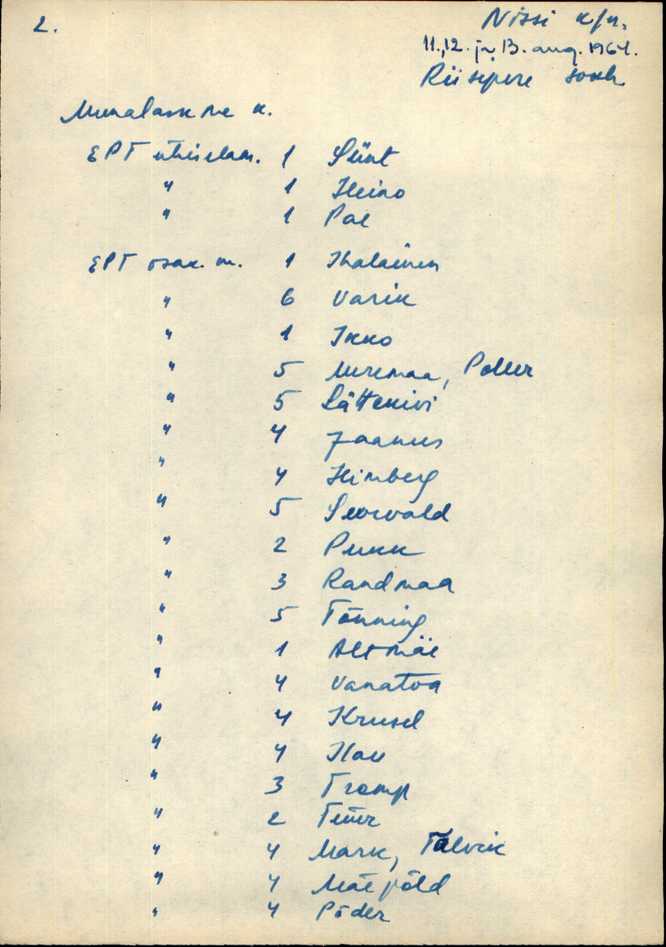 2.
Nissi k/n.
11.,12. ja 13. aug. 1964.
Riisipere sovh
Munalaskme k.
EPT ühiselam. 1 Sünt
" 1 Heino
" 1 Pae
EPT osak. m. 1 Ihalainen
" 6 Varik
" 1 Ikko
" 5 Muremaa, Poller
" 5 Lättekivi
" 4 Jaanus
" 4 Himberg
" 5 Seorvald
" 2 Pukk
" 3 Randmaa
" 5 Tönning
" 1 Altmäe
" 4 Vanatoa
" 4 Krusel
" 4
" 3 Tromp
" 2
" 4 Mark, Talvik
" 4 Mäepõld
" 4 Põder